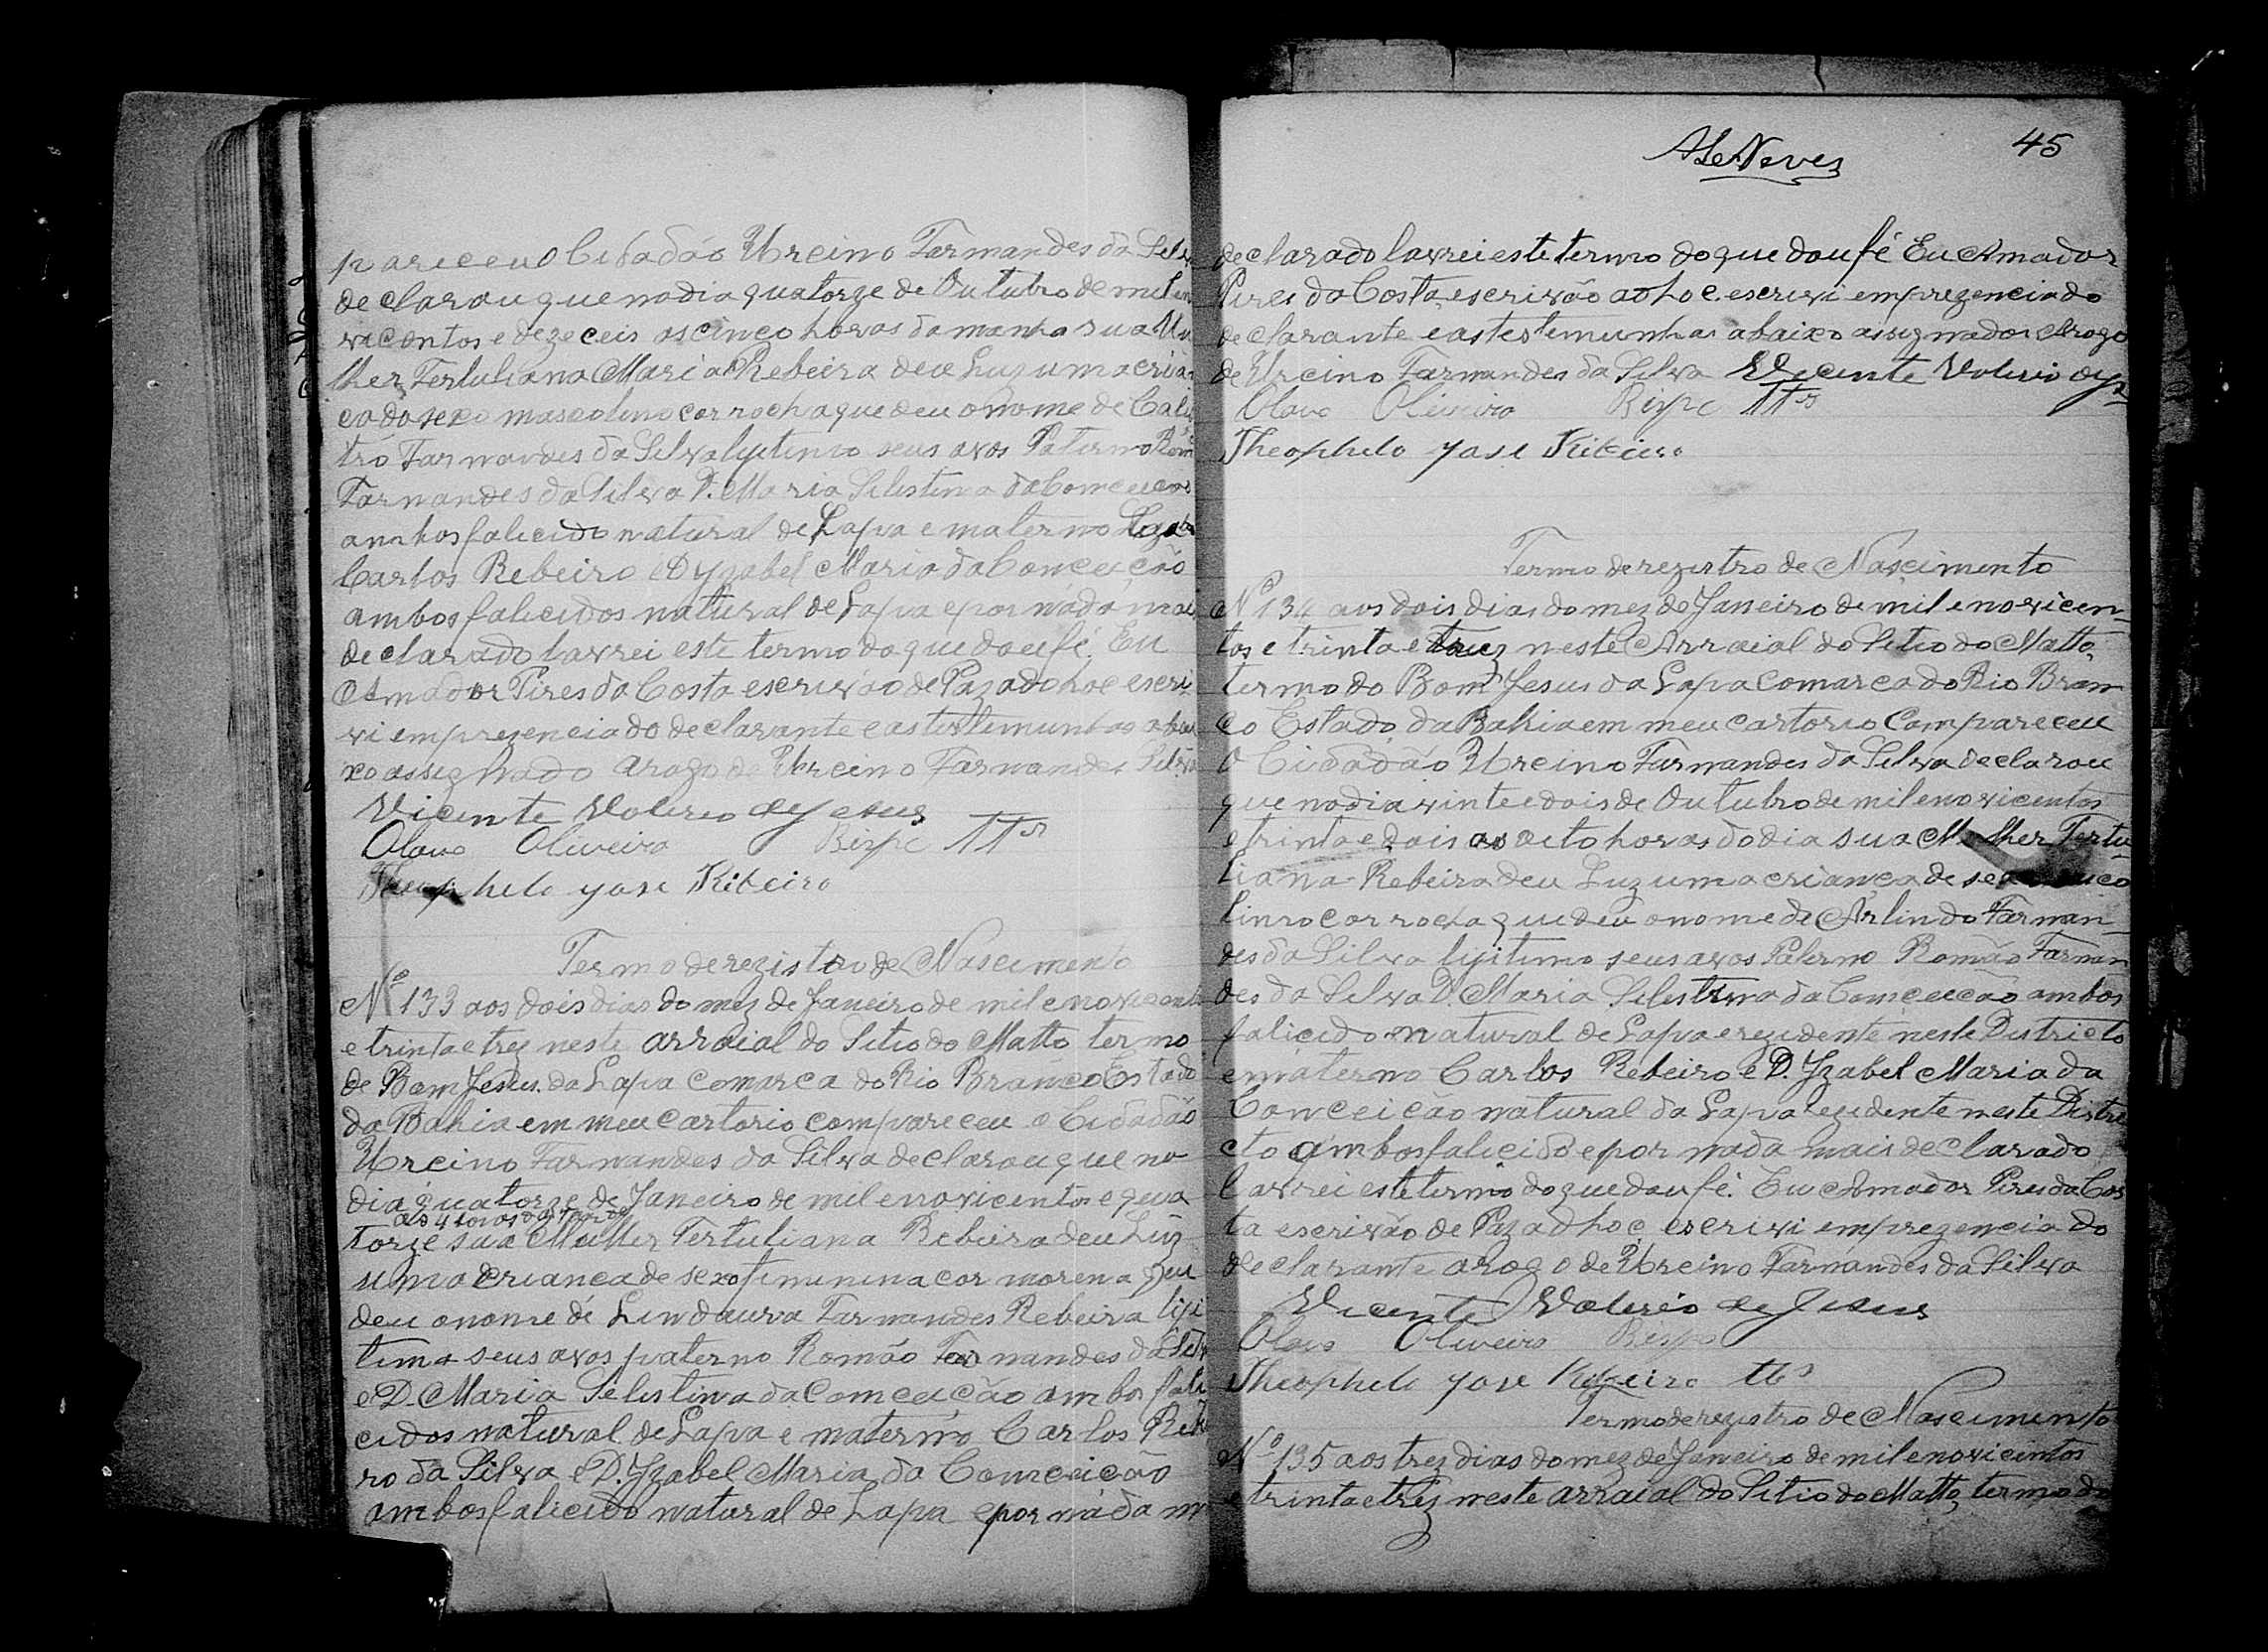 pareceu o Cidadão Urcino Farnandes da Silv
declarou que no dia quatorze de Outubro de mil en
vicentos e dezeceis as cinco horas da manha sua Mu
lher Tertuliana Maria Rebeira deu a Luz uma crian
ca do sexo mascolino cor rocha que deu o nome de Calis
tro Farnandes da Silva lijitimo seus avos Paterno Rom
Farnandes da Silva D. Maria Silistina da Comceicão
ambos falicido natural de Lapa e materno
Carlos Rebeiro e D Yzabel Maria da Conceicão
ambos falicidos natural de Lapa e por nada mais
declarado lavrei este termo do que dou fé. Eu
Amador Pires da Costa escrivão de Paz adhoc escri
vi em prezencia do declarante e as testemunhas abai
xo assignado arogo de Urcino Farnandes Silva
Vicente Valerio de Jesus
Olavo Oliveira Bispo TTas
Theophilo Jose Ribeiro
Termo de registro de Nascimento
Nº 133 aos dois dias do mez de Janeiro de mil e novicent
e trinta e trez neste arraial do Sitio do Matto termo
de Bom Jesus da Lapa comarca do Rio Branco Estado
da Bahia em meu cartorio compareceu o Cidadão
Urcino Farnandes da Silva declarou que no
dia quatorze de Janeiro de mil e novicentos e qua
as 4 horas da tarde
torze sua Mulher Tertuliana Rebeira deu Luz
uma crianca de sexo fiminina cor morena que
deu o nome de Lindaura Farnandes Rebeira liji
tima seus avos paterno Romão Farnandes da Silv
e D. Maria Silistina da Comceicão ambos fali
cidos natural de Lapa e materno Carlos Rebei
ro da Silva e D. Yzabel Maria da Comceicão
ambos falicido natural de Lapa e por nada m
ALeNeves
45
declarado lavrei este termo do que dou fé Eu Amador
Pires da Costa escrivão adhoc. escrivi em prezencia do
declarante e as testemunhas abaixo assignados Arogo
de Urcino Farnandes da Silva Vicente Valerio
Olavo Oliveira Bispo TTas
Theophilo Jose Ribeiro
Termo de registro de Nascimento
Nº 134 aos dois dias do mez de Janeiro de mil e novicen-
tos e trinta e trez neste Arraial do Sitio do Matto,
termo do Bom Jesus da Lapa Comarca do Rio Bran
co Estado da Bahia em meu cartorio Compareceu
O Cidadão Urcino Farnandes da Silva declarou
que no dia vinte e dois de Outubro de mil e novicentos
e trinta e dois as oito horas do dia sua Mulher Tertu-
liana Rebeira deu Luz uma criança de
linro cor rocha que deu o nome de Arlindo Farnan-
des da Silva lijitimo seus avos Paterno Romão Farnan
des da Silva D. Maria Silistina da Comceicão ambos
falicido natural de Lapa e rezidente neste Districto
e materno Carlos Rebeiro e D. Yzabel Maria da
Conceicão natural da Lapa rezidente neste Distri
cto ambos falicido e por nada mais declarado
lavrei este termo do que dou fé. Eu Amador Pires da Cos
ta escrivão de Paz adhoc escrivi em prezencia do
declarante arogo de Urcino Farnandes da Silva
Vicente Valerio de Jesus
Olavo Oliveira Bispo
Theophilo Jose Ribeiro ttas
Termo de registro de Nascimento
Nº 135 aos trez dias do mez de Janeiro de mil e novicintos
e trinta e trêz neste arraial do Sitio do Matto, termo do